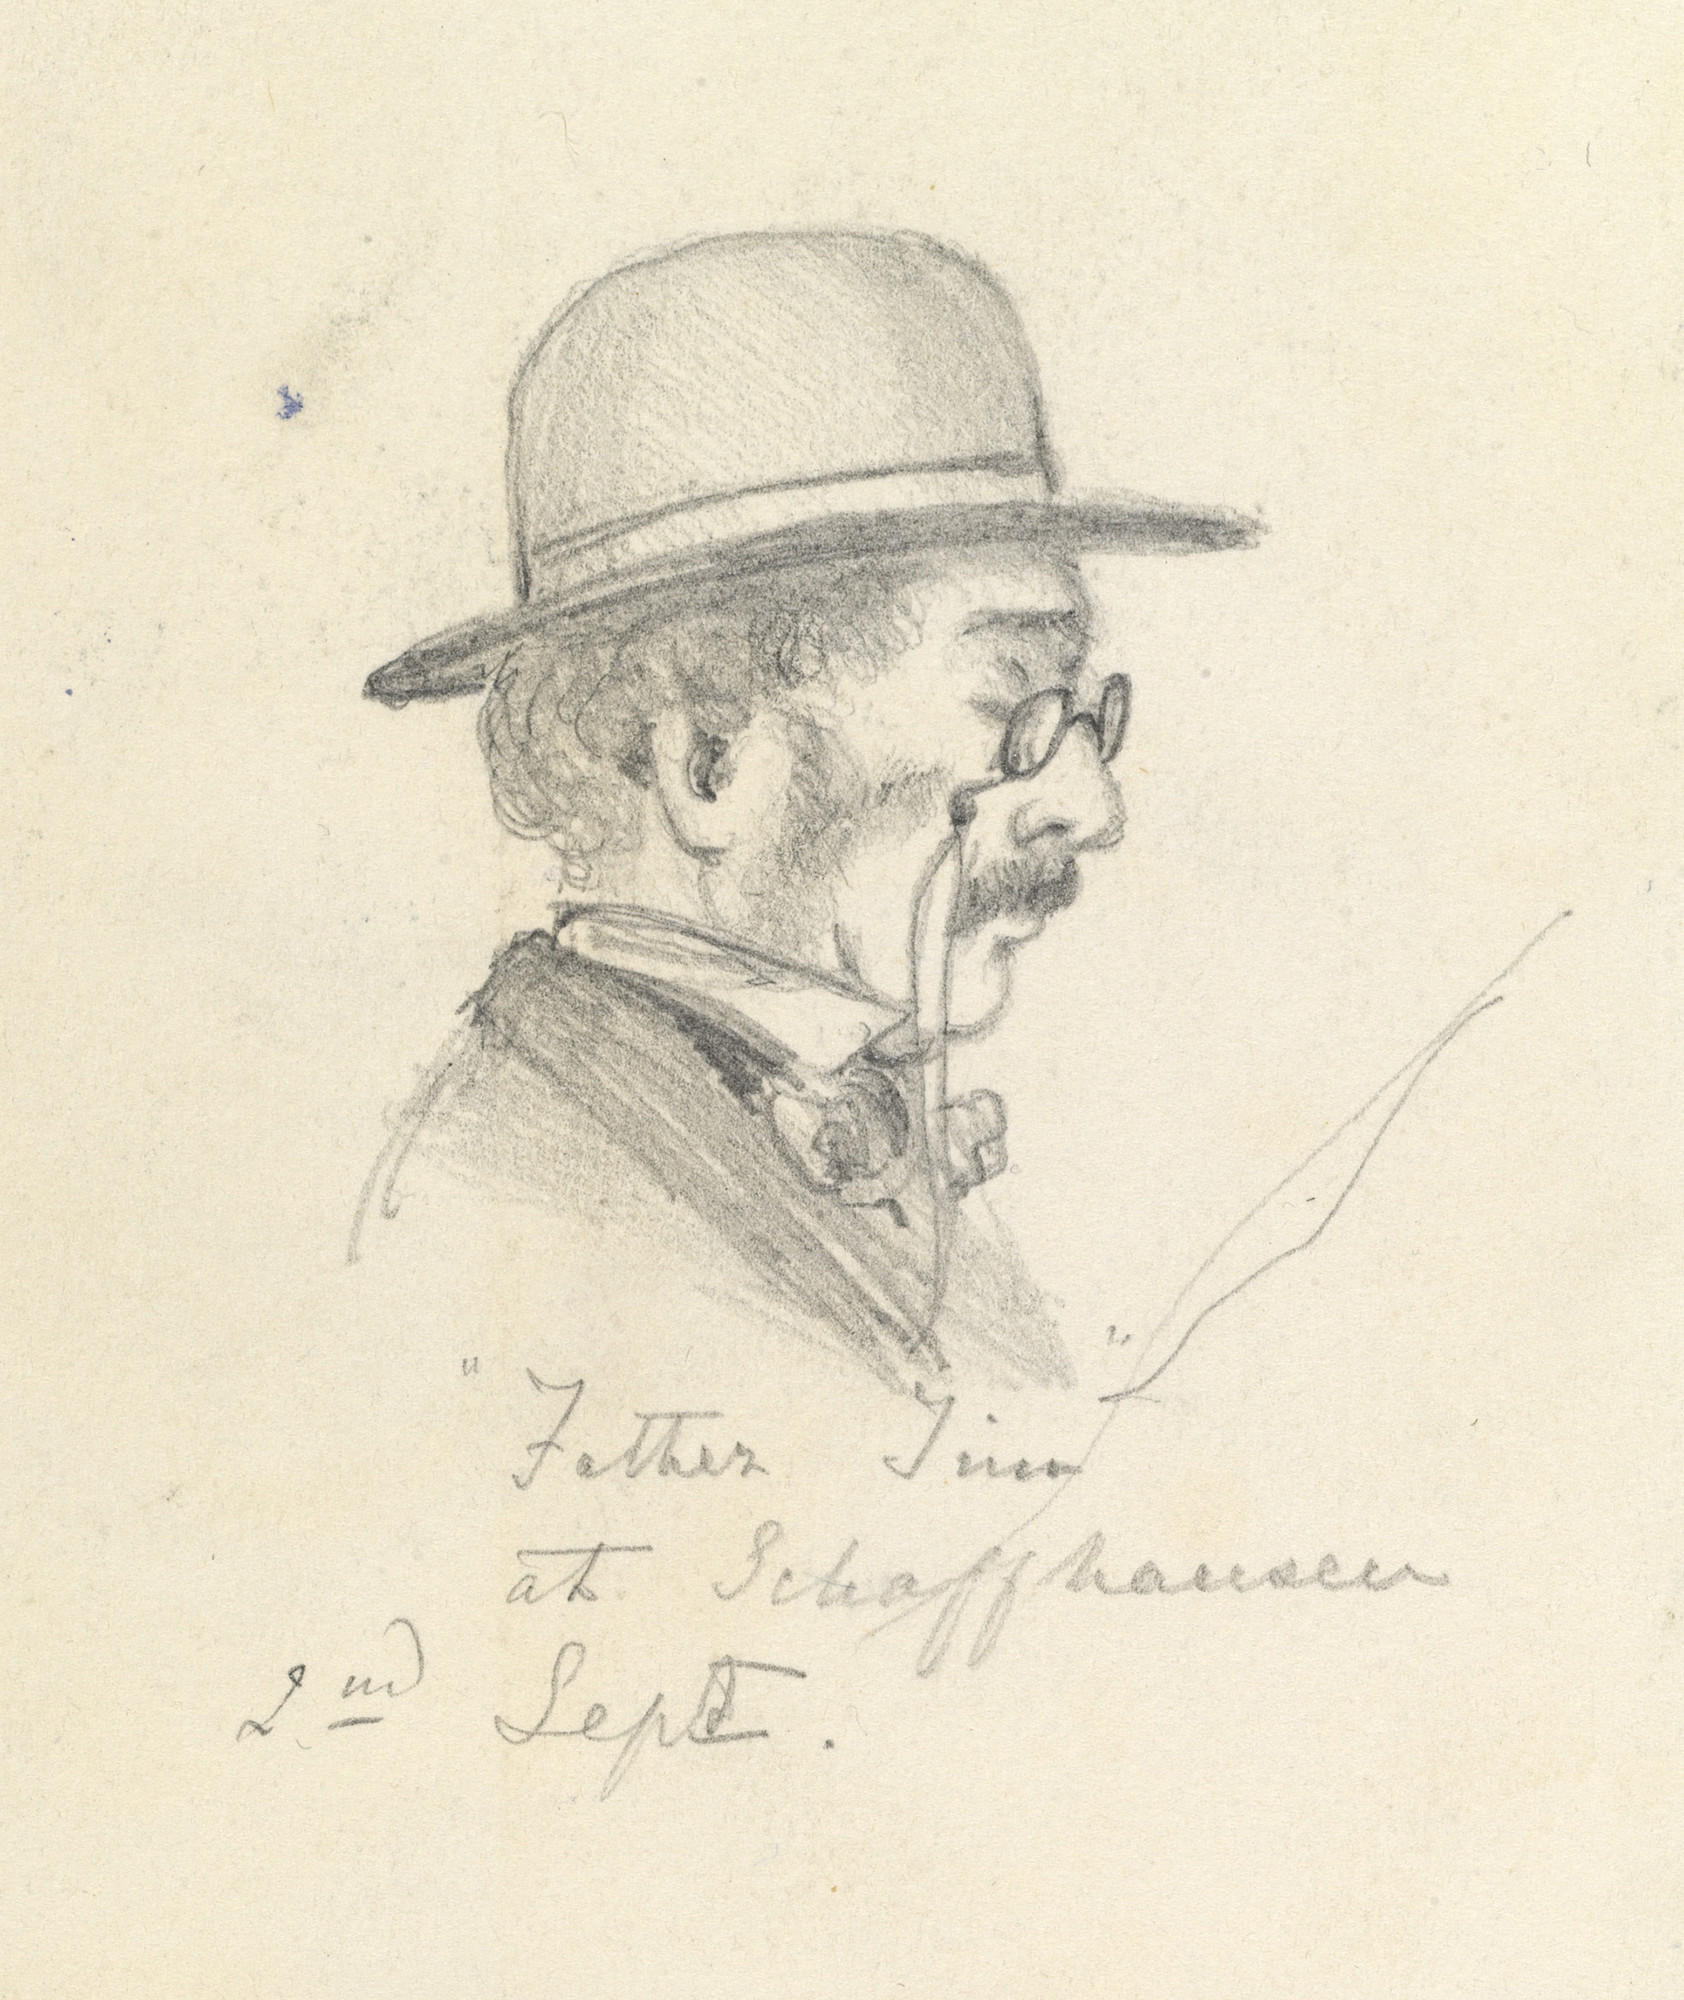 "Father Jim"
at Schaffhausen
2nd Sept.